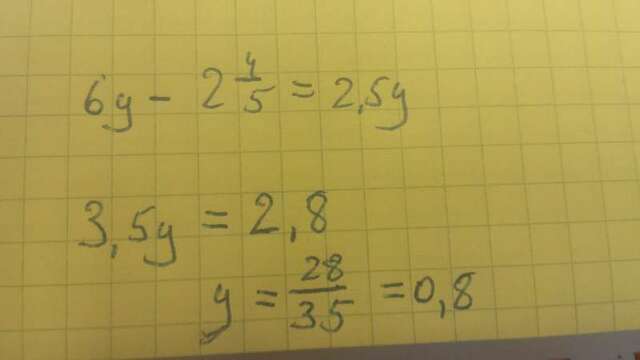 6y - 2 4/5 = 2,5y
3,5y = 2,8
y = 28/35 = 0,8